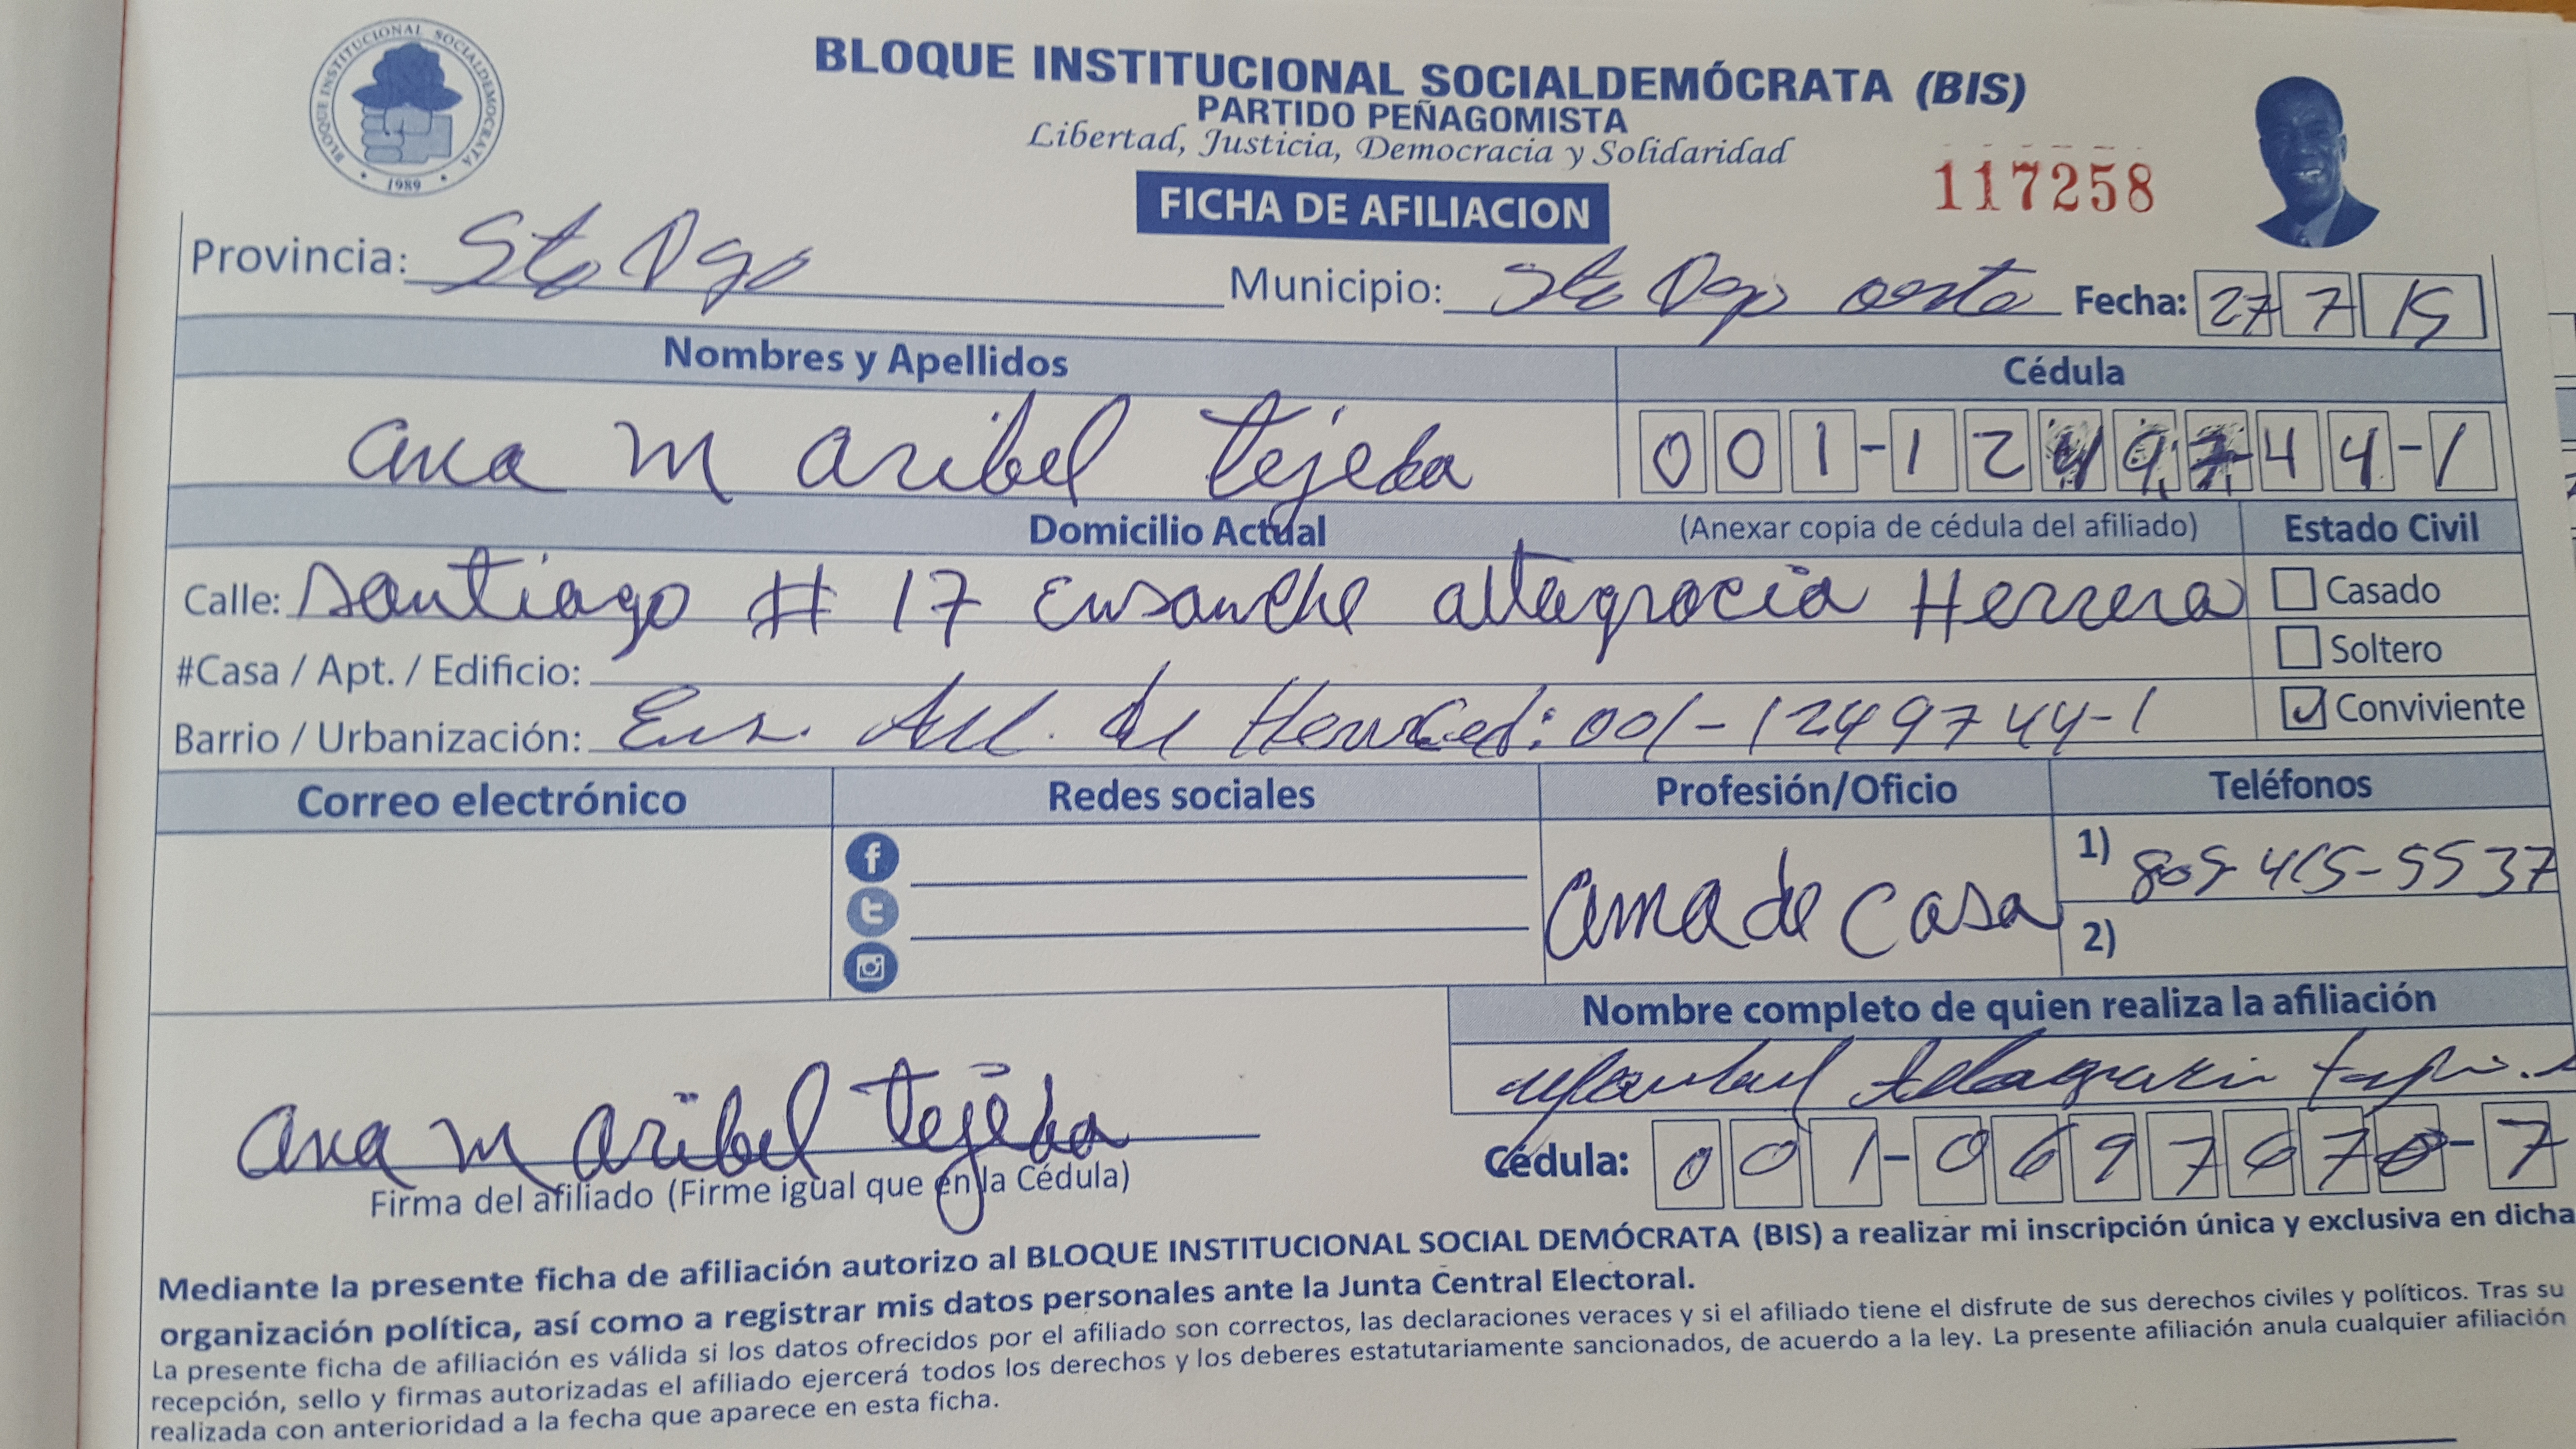 BLOQUE INSTITUCIONAL SOCIALDEMOCRATA
1989
BLOQUE INSTITUCIONAL SOCIALDEMÓCRATA (BIS)
PARTIDO PEÑAGOMISTA
Libertad, Justicia, Democracia y Solidaridad
FICHA DE AFILIACION
117258
Provincia: Sto Dgo Municipio: Sto Dgo oeste Fecha: 27 7 15
Nombres y Apellidos Cédula
ana Maribel tejeda 001-1249744-1
Domicilio Actual (Anexar copia de cédula del afiliado) Estado Civil
Calle: Santiago # 17 Ensanche altagracia Herrera Casado
#Casa / Apt. / Edificio: Soltero
Barrio / Urbanización: Ens. Alt. de Ced: 001-1249744-1 Conviviente
Correo electrónico Redes sociales Profesión/Oficio Teléfonos
ama de casa
1) 809 415-5537
2)
Nombre completo de quien realiza la afiliación
ana Maribel tejeda
Cédula: 001-0697670-7
Firma del afiliado (Firme igual que en la Cédula)
Mediante la presente ficha de afiliación autorizo al BLOQUE INSTITUCIONAL SOCIAL DEMÓCRATA (BIS) a realizar mi inscripción única y exclusiva en dicha
organización política, así como a registrar mis datos personales ante la Junta Central Electoral.
La presente ficha de afiliación es válida si los datos ofrecidos por el afiliado son correctos, las declaraciones veraces y si el afiliado tiene el disfrute de sus derechos civiles y políticos. Tras su
recepción, sello y firmas autorizadas el afiliado ejercerá todos los derechos y los deberes estatutariamente sancionados, de acuerdo a la ley. La presente afiliación anula cualquier afiliación
realizada con anterioridad a la fecha que aparece en esta ficha.